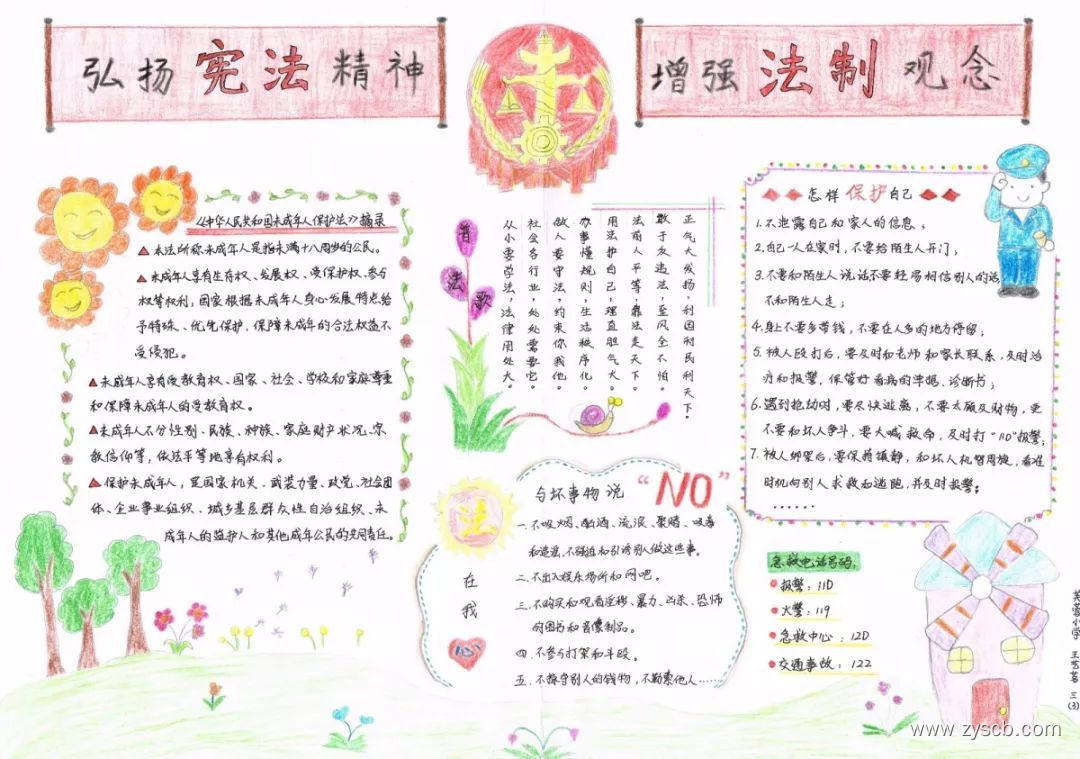 弘扬宪法精神
增强法制观念
《中华人民共和国未成年人保护法》摘录
本法所称未成年人是指未满十八周岁的公民。
未成年人享有生存权、发展权、受保护权、参与
权等权利,国家根据未成年人身心发展特点给
予特殊、优先保护,保障未成年的合法权益不
受侵犯。
未成年人享有受教育权、国家、社会、学校和家庭尊重
和保障未成年人的受教育权。
未成年人不分性别、民族、种族、家庭财产状况、宗
教信仰等,依法平等地享有权利。
保护未成年人,是国家机关、武装力量、政党、社会团
体、企业事业组织、城乡基层群众性自治组织、未
成年人的监护人和其他成年公民的共同责任。
普法歌
正气大发扬,利国利民利天下。
敢于反违法,歪风全不怕
法前人平等,靠法走天下。
用法护自己,理直胆气大。
办事懂规则,生活秩序化。
做人要守法,约束你我他。
社会各行业,处处需要它。
从小要学法,法律用处大。
法
在
我
心
与坏事物说“NO”
一.不吸烟、酗酒、流浪、聚赌、吸毒
和造谣,不强迫和引诱别人做这些事。
二.不出入娱乐场所和网吧。
三.不购买和观看淫秽、暴力、凶杀、恐怖
的图书和音像制品。
四.不参与打架和斗殴。
五.不掠夺别人的钱物,不勒索他人......
怎样保护自己
1.不泄露自己和家人的信息;
2.自己一人在家时,不要给陌生人开门;
3.不要和陌生人说话不要轻易相信别人的话
不和陌生人走;
4.身上不要多带钱,不要在人多的地方停留;
5.被人殴打后,要及时和老师和家长联系,及时治
疗和报警,保管好看病的单据、诊断书;
6.遇到抢劫时,要尽快逃离,不要太顾及财物,更
不要和坏人争斗,要大喊救命,及时打“110”报警;
7.被人绑架后,要保持镇静,和坏人机智周旋,看准
时机向别人求救和逃跑,并及时报警;
......
急救电话号码:
报警:110
火警:119
急救中心:120
交通事故:122
三(3)
www.zyscb.com